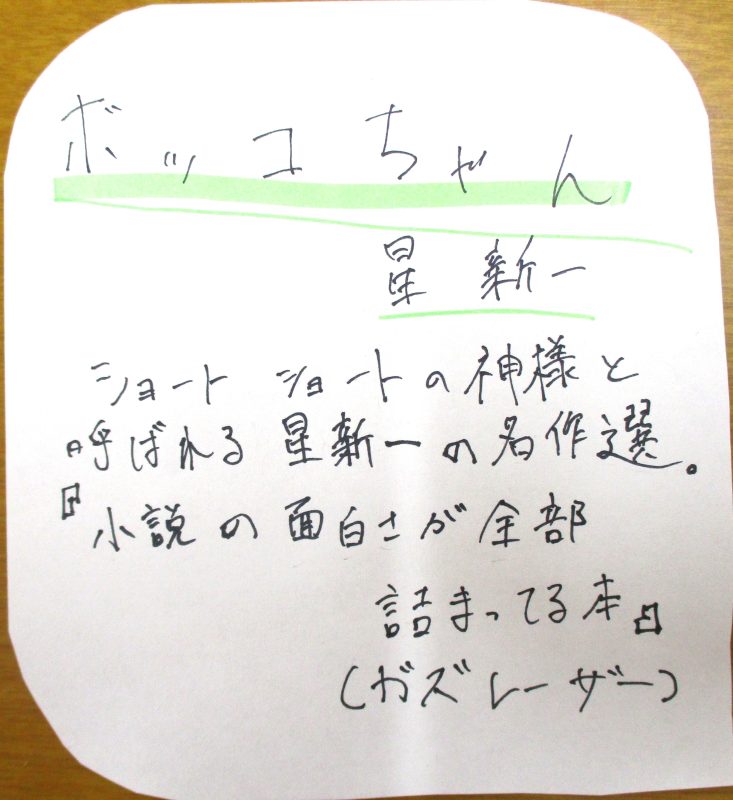 ボッコちゃん
星新一
ショートショートの神様と
呼ばれる星新一の名作選。
『小説の面白さが全部
詰まってる本』
(ガズレーザー)